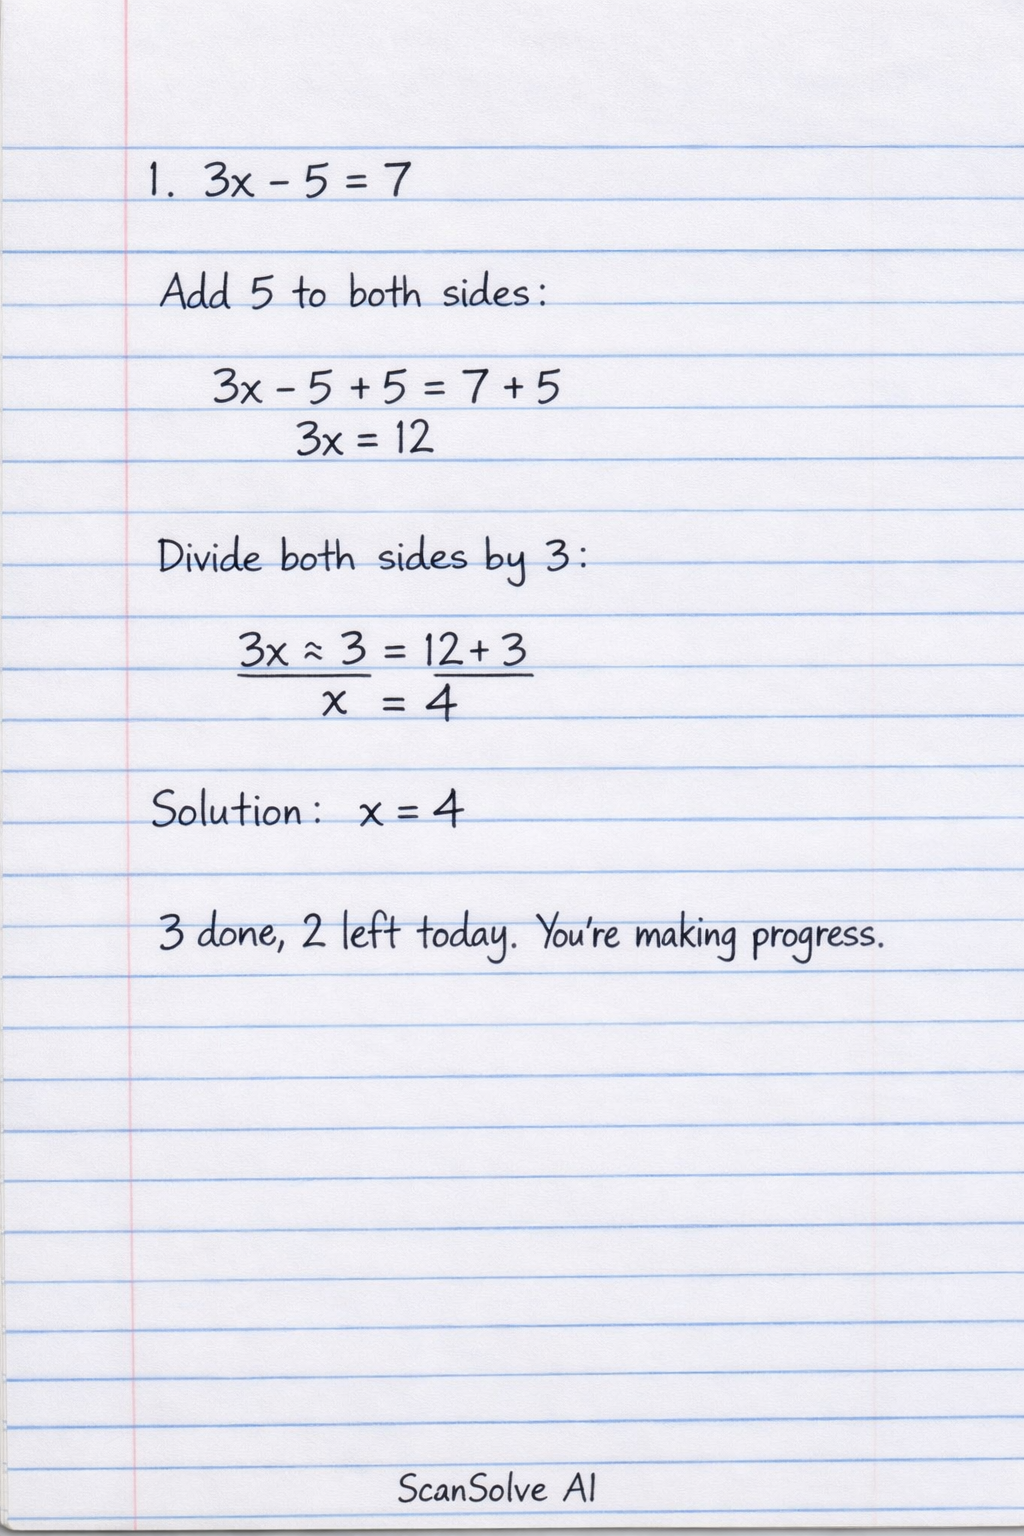 1. 3x - 5 = 7
Add 5 to both sides:
3x - 5 + 5 = 7 + 5
3x = 12
Divide both sides by 3:
3x ≈ 3 = 12 + 3
x = 4
Solution: x = 4
3 done, 2 left today. You're making progress.
ScanSolve AI